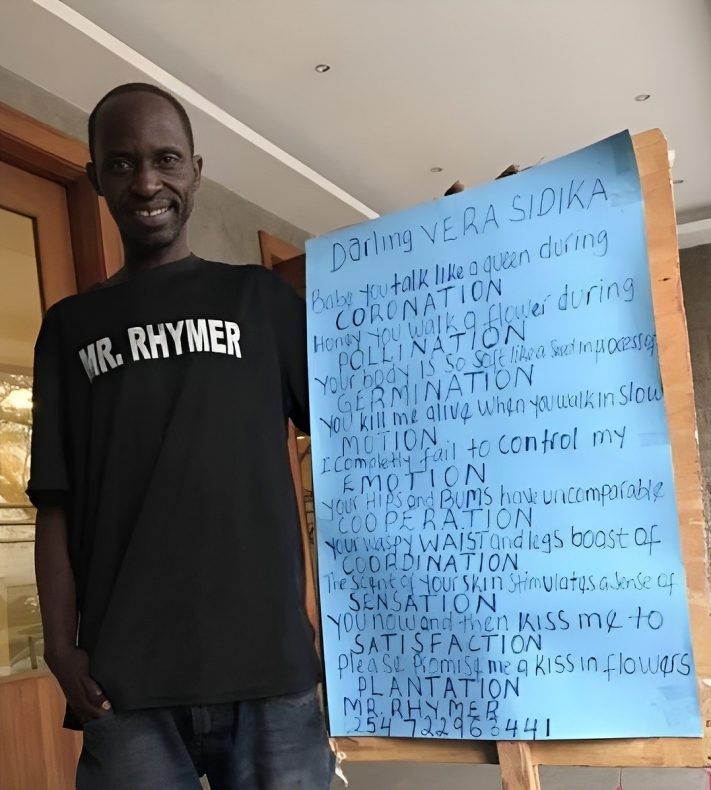 MR. RHYMER
Darling VERA SIDIKA
Babe you talk like a queen during
CORONATION
Honey you walk a flower during
POLLINATION
Your body is so soft like a seed in process of
GERMINATION
You kill me alive when you walk in slow
MOTION
I completly fail to control my
EMOTION
Your HIPS and BUMS have uncomparable
COOPERATION
Your waspy WAIST and legs boast of
COORDINATION
The scent of your skin stimulates a sense of
SENSATION
You now and then kiss me to
SATISFACTION
Please Promise me a kiss in flowers
PLANTATION
MR. RHYMER
254 722963441